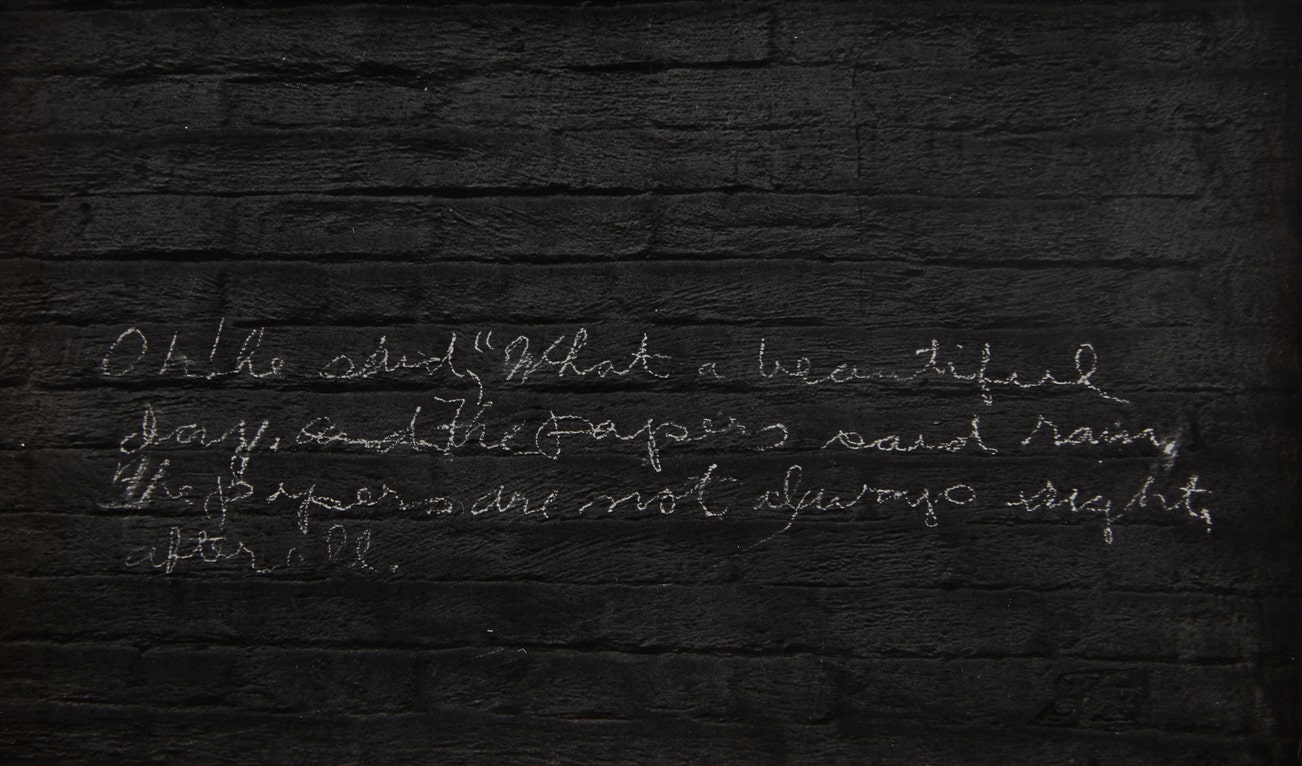 Oh! he said, "What a beautiful
day, and the papers said rain,
The papers are not always right,
after all.